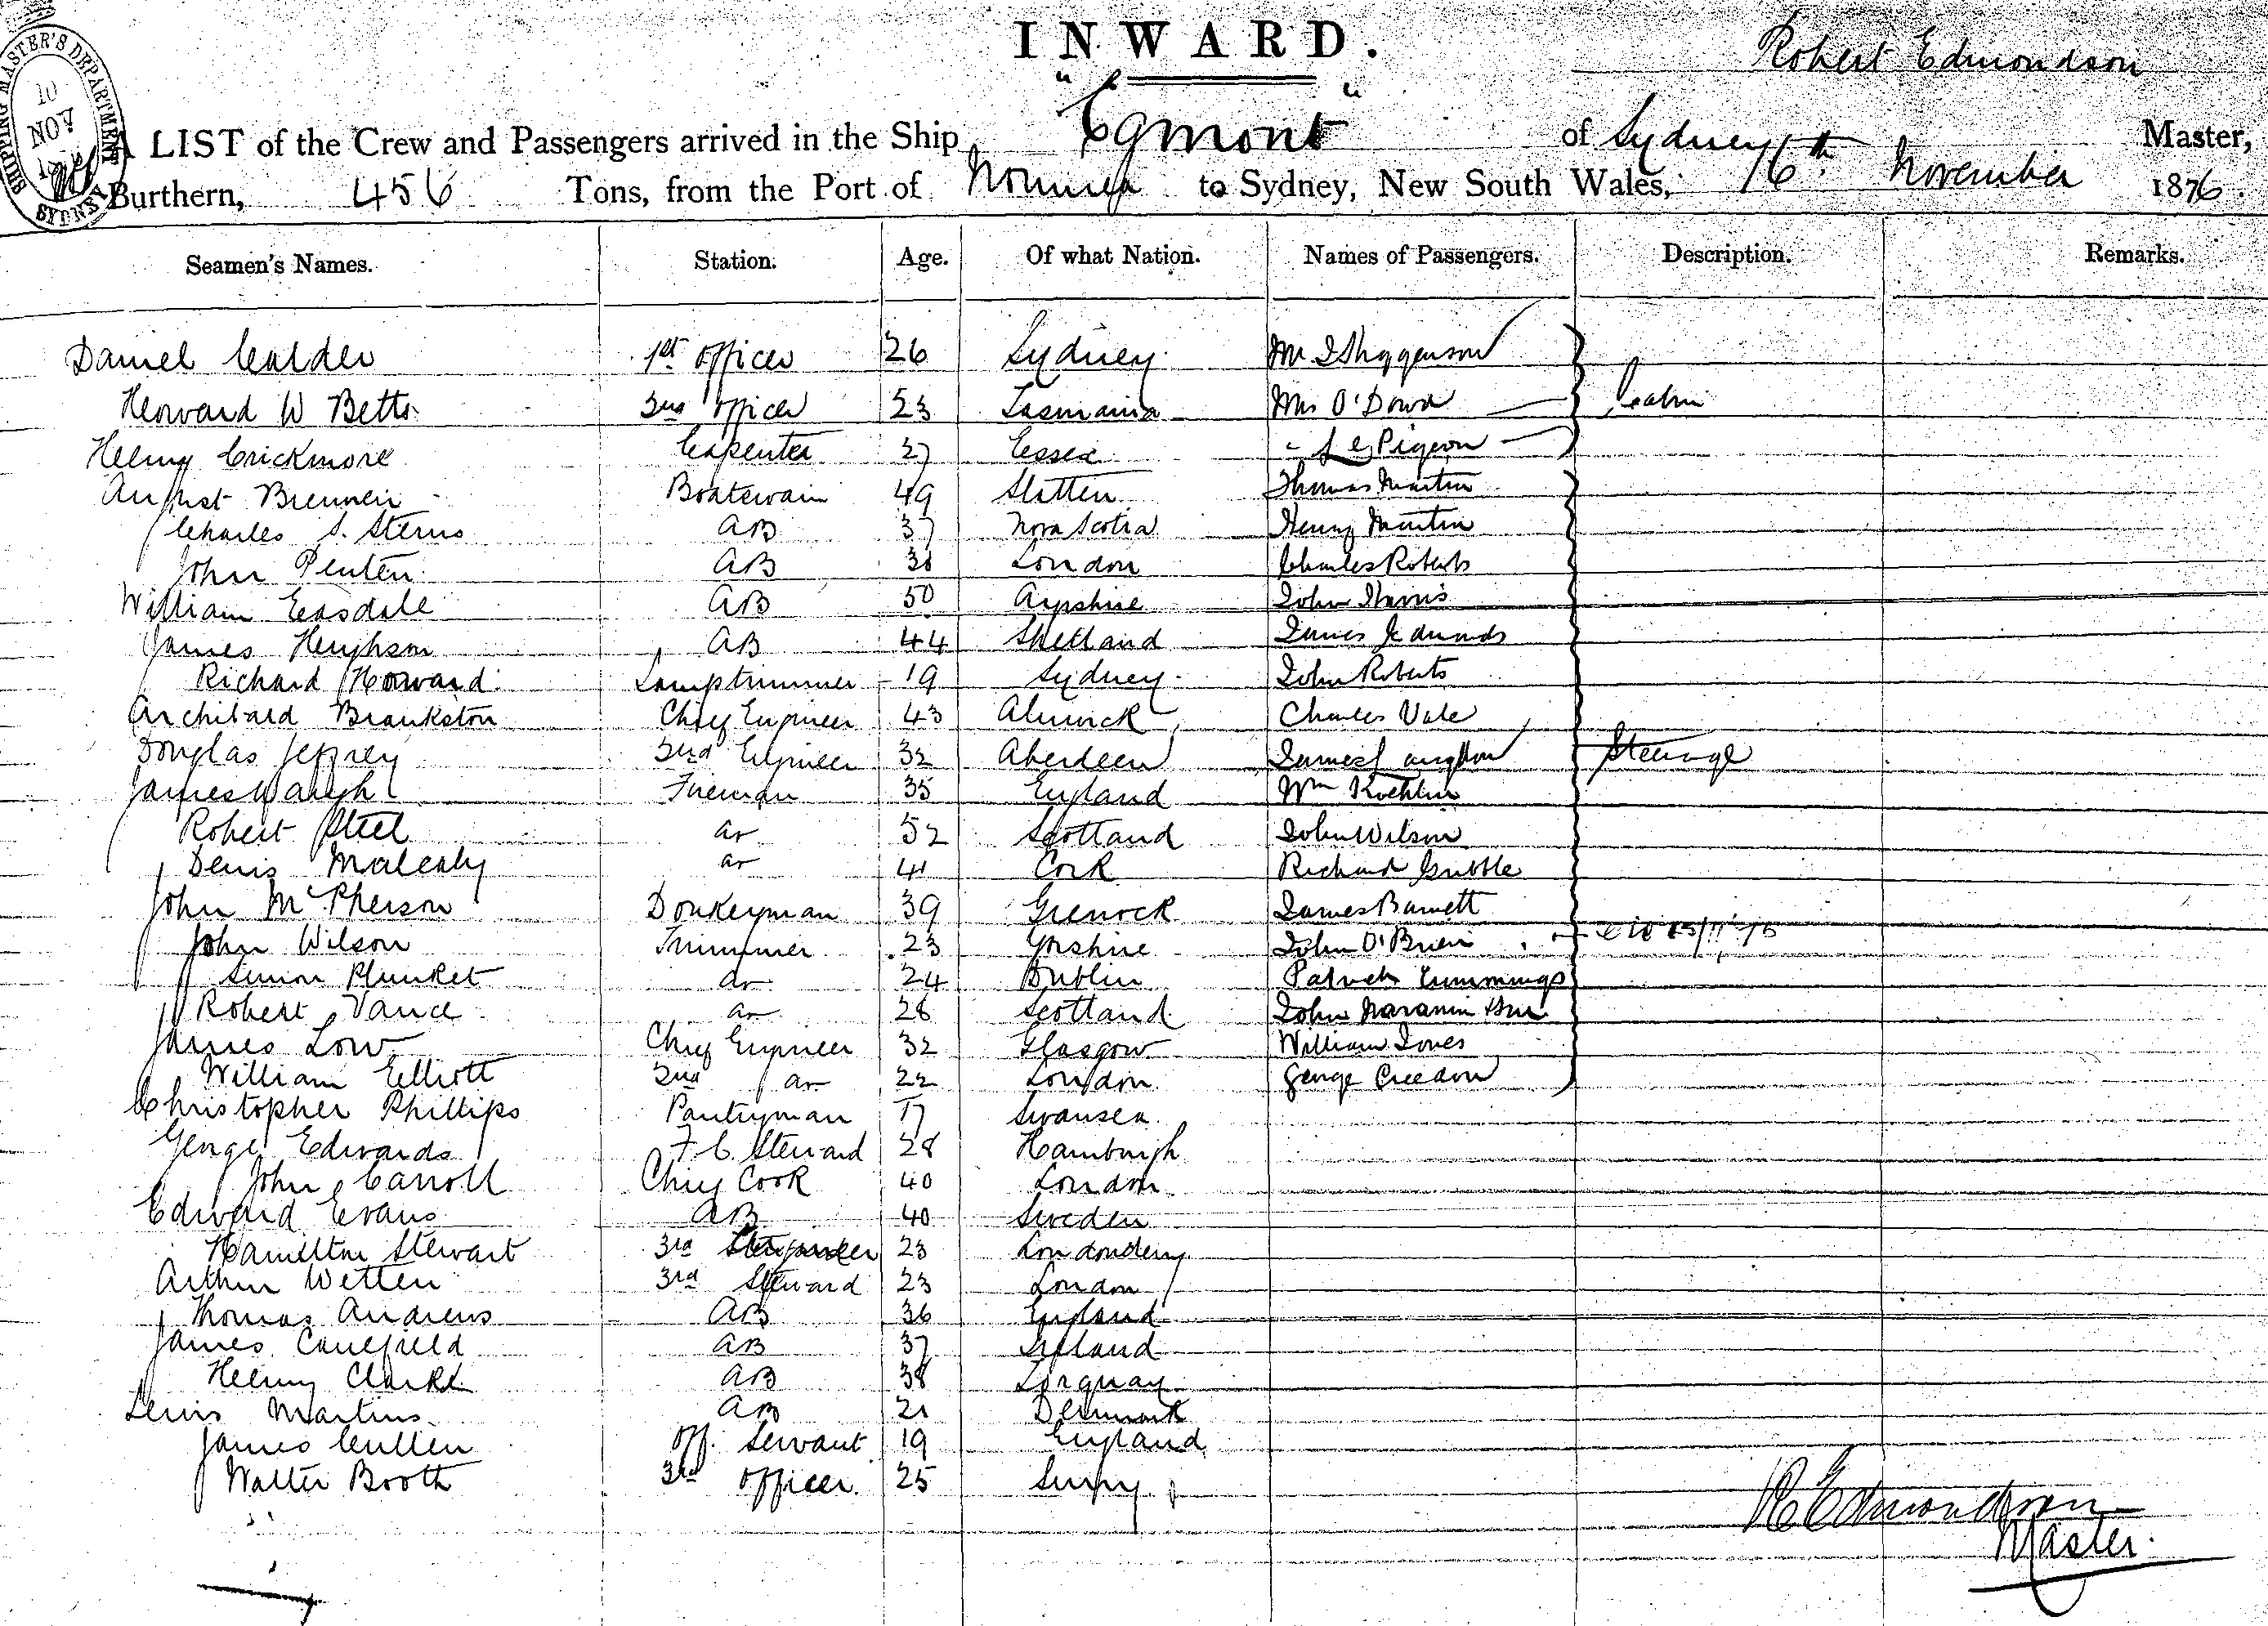 INWARD.
Robert Edmondson
SHIPPING MASTER'S DEPARTMENT
10
NOV
SYDNEY
A LIST of the Crew and Passengers arrived in the Ship "Egmont" of Sydney Master,
Burthern, 456 Tons, from the Port of Noumea to Sydney, New South Wales, 6th November 1876.
Seamen's Names. Station. Age. Of what Nation. Names of Passengers. Description. Remarks.
Daniel Calder 1st Officer 26 Sydney Mr
Howard W Betts 2nd Officer 23 Tasmania Mrs O'Dowd Cabin
Henry Crickmore Carpenter 27 Essex " Le Pigeon
August Brennen Boatswain 49 Thomas Martin
Charles S. Sterns AB 37 Nova Scotia Henry Martin
John Penten AB London Charles Roberts
William Easdale AB 50 Ayrshire John Harris
James Hughson AB 44 Shetland James Edmunds
Richard Howard Lamptrimmer 19 Sydney John Roberts
Archibald Brankston Chief Engineer 43 Alnwick Charles Vale
Douglas Jeffrey 2nd Engineer 32 Aberdeen James Langdon Steerage
James Waugh Fireman 35 England Wm
Robert Steel do 52 Scotland John Wilson
Denis do 41 Cork Richard Gribble
John McPherson Donkeyman 39 Grenock James Barnett
John Wilson Trimmer 23 Yorshire John O'Brien
Simon Plunket do 24 Dublin Patrick Cummings
Robert Vance do 28 Scotland John
James Low Chief Engineer 32 Glasgow William Jones
William Elliott 2nd do 22 London George Creedon
Christopher Phillips Pantryman 17 Swansea
George Edwards F C Steward 28 Hamburgh
John Carroll Chief Cook 40 London
Edward Evans AB 40 Sweden
Hamilton Stewart 3rd 23 Londonderry
Arthur Wetten 3rd Steward 23 London
Thomas Andrews AB 36 England
James Caulfield AB 37 Ireland
Henry Clarke AB 38 Torquay
Lewis Martins AB 21 Denmark
James Cullen Off. Servant 19 England
Walter Booth 3rd Officer. 25 Surry
R Edmondson
Master.